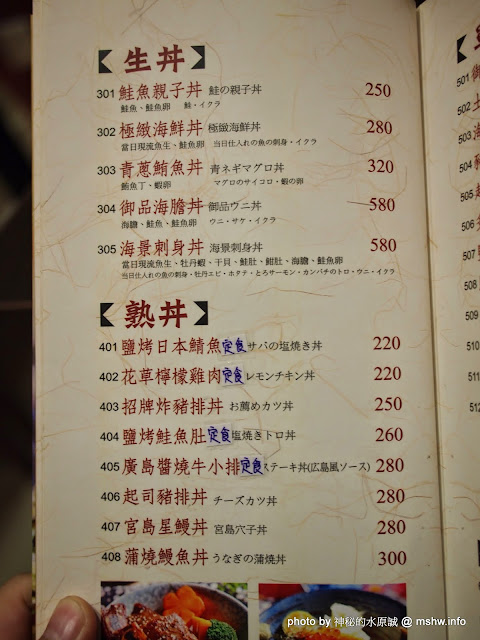 【生丼】
301 鮭魚親子丼 鮭の親子丼 250
鮭魚、鮭魚卵 鮭・イクラ
302 極緻海鮮丼 極緻海鮮丼 280
當日現流魚生、鮭魚卵 当日仕入れの魚の刺身・イクラ
303 青蔥鮪魚丼 青ネギマグロ丼 320
鮪魚丁、蝦卵 マグロのサイコロ・蝦の卵
304 御品海膽丼 御品ウニ丼 580
海膽、鮭魚、鮭魚卵 ウニ・サケ・イクラ
305 海景刺身丼 海景刺身丼 580
當日現流魚生、牡丹蝦、干貝、鮭肚、魽肚、海膽、鮭魚卵
当日仕入れの魚の刺身・牡丹エビ・ホタテ・とろサーモン・カンパチのトロ・ウニ・イクラ
【熟丼】
401 鹽烤日本鯖魚定食 サバの塩焼き丼 220
402 花草檸檬雞肉定食 レモンチキン丼 220
403 招牌炸豬排丼 お薦めカツ丼 250
404 鹽烤鮭魚肚定食 塩焼きトロ丼 260
405 廣島醬燒牛小排定食 ステーキ丼(広島風ソース) 280
406 起司豬排丼 チーズカツ丼 280
407 宮島星鰻丼 宮島穴子丼 280
408 蒲燒鰻魚丼 うなぎの蒲焼丼 300
501
502
503
504
505
506
507
508
509
510
511
512
photo by 神秘的水原誠 @ mshw.info